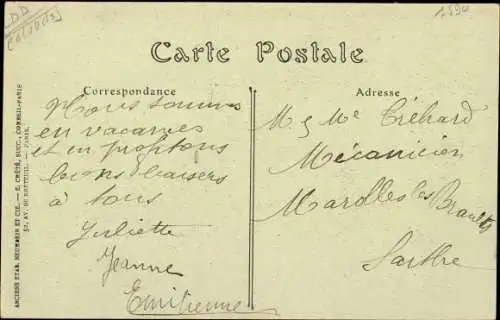 DD
1.590
Carte Postale
Correspondance
Nous sommes
en vacances
et en profitons
bons baisers
à tous
Juliette
Jeanne
Emilienne
Adresse
M & Me Tréhard
Mécanicien
Marolles les Braults
Sarthe
ANCIENS ETAB. NEURDEIN ET CIE. — E. CRÉTÉ, SUCC. CORBEIL-PARIS
52, AV. DE BRETEUIL. — PARIS.